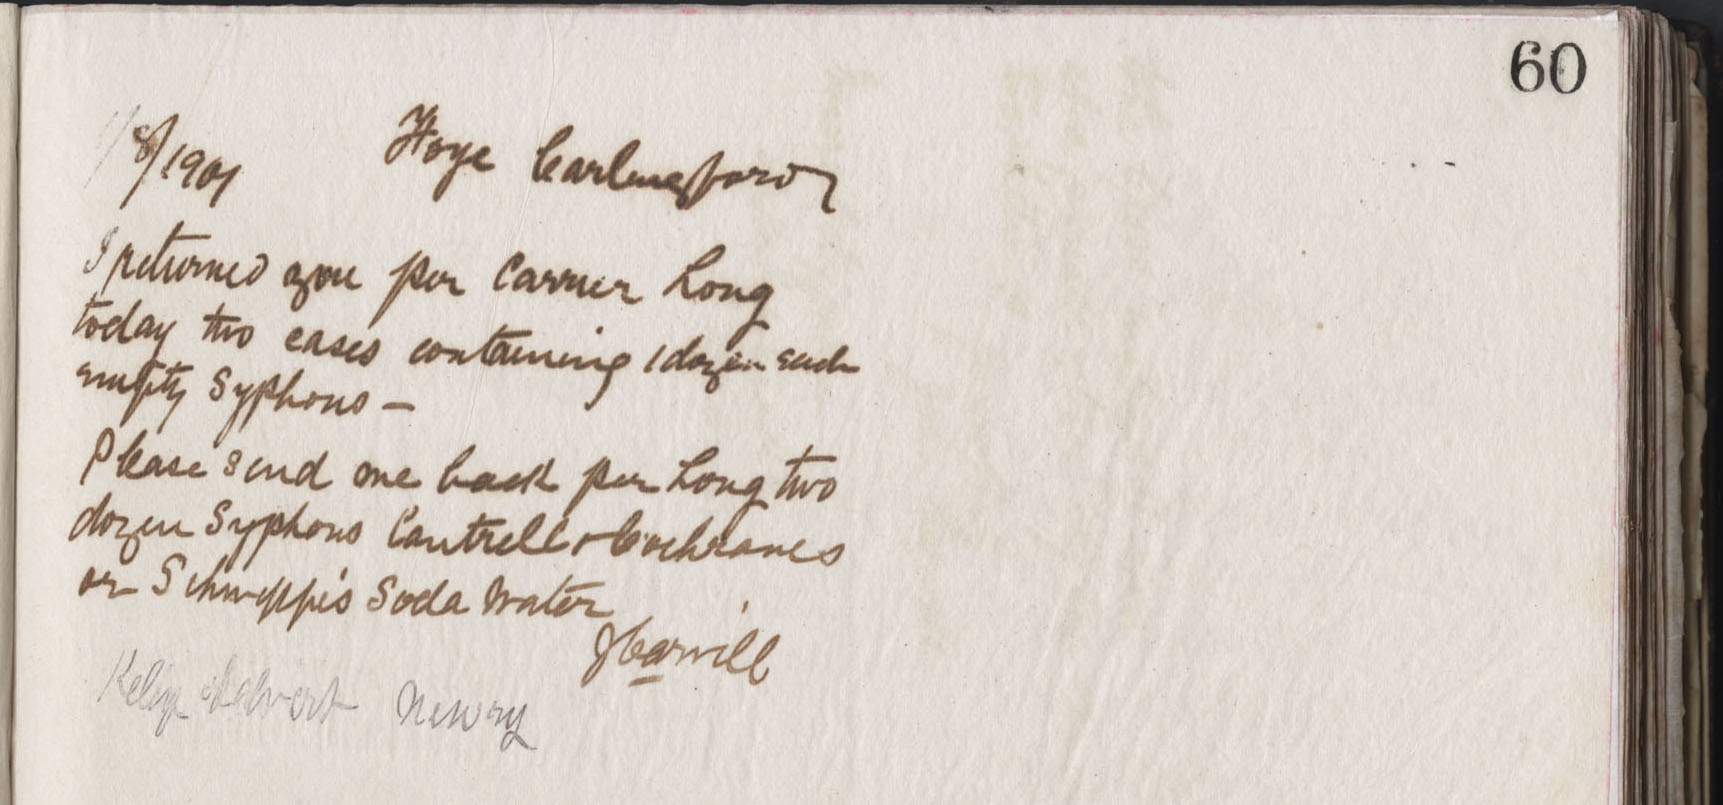 60
1/8/1901 Hoye Carlingford
I returned you per Carrier Long
today two cases containing 1 dozen each
empty Syphons —
Please send me back per Long two
dozen Syphons Cantrell & Cochranes
or Schweppe's Soda Water
J Carvill
Newry